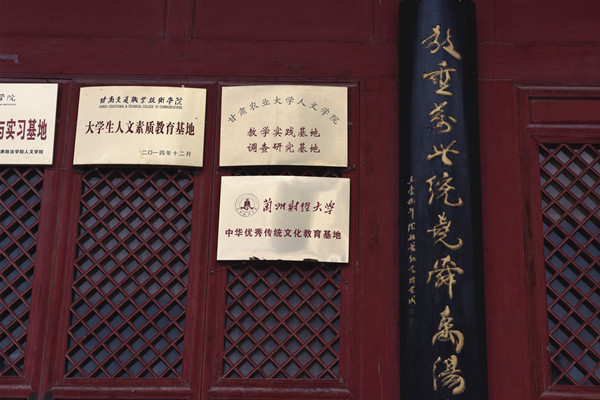 学院
与实习基地
肃政法学院人文学院
甘肃交通职业技术学院
GANSU VOCATIONAL & TECHNICAL COLLEGE OF COMMUNICATIONS
大学生人文素质教育基地
二〇一四年十二月
甘肃农业大学人文学院
教学实践基地
调查研究基地
兰州财经大学
中华优秀传统文化教育基地
教垂万世统尧舜禹汤